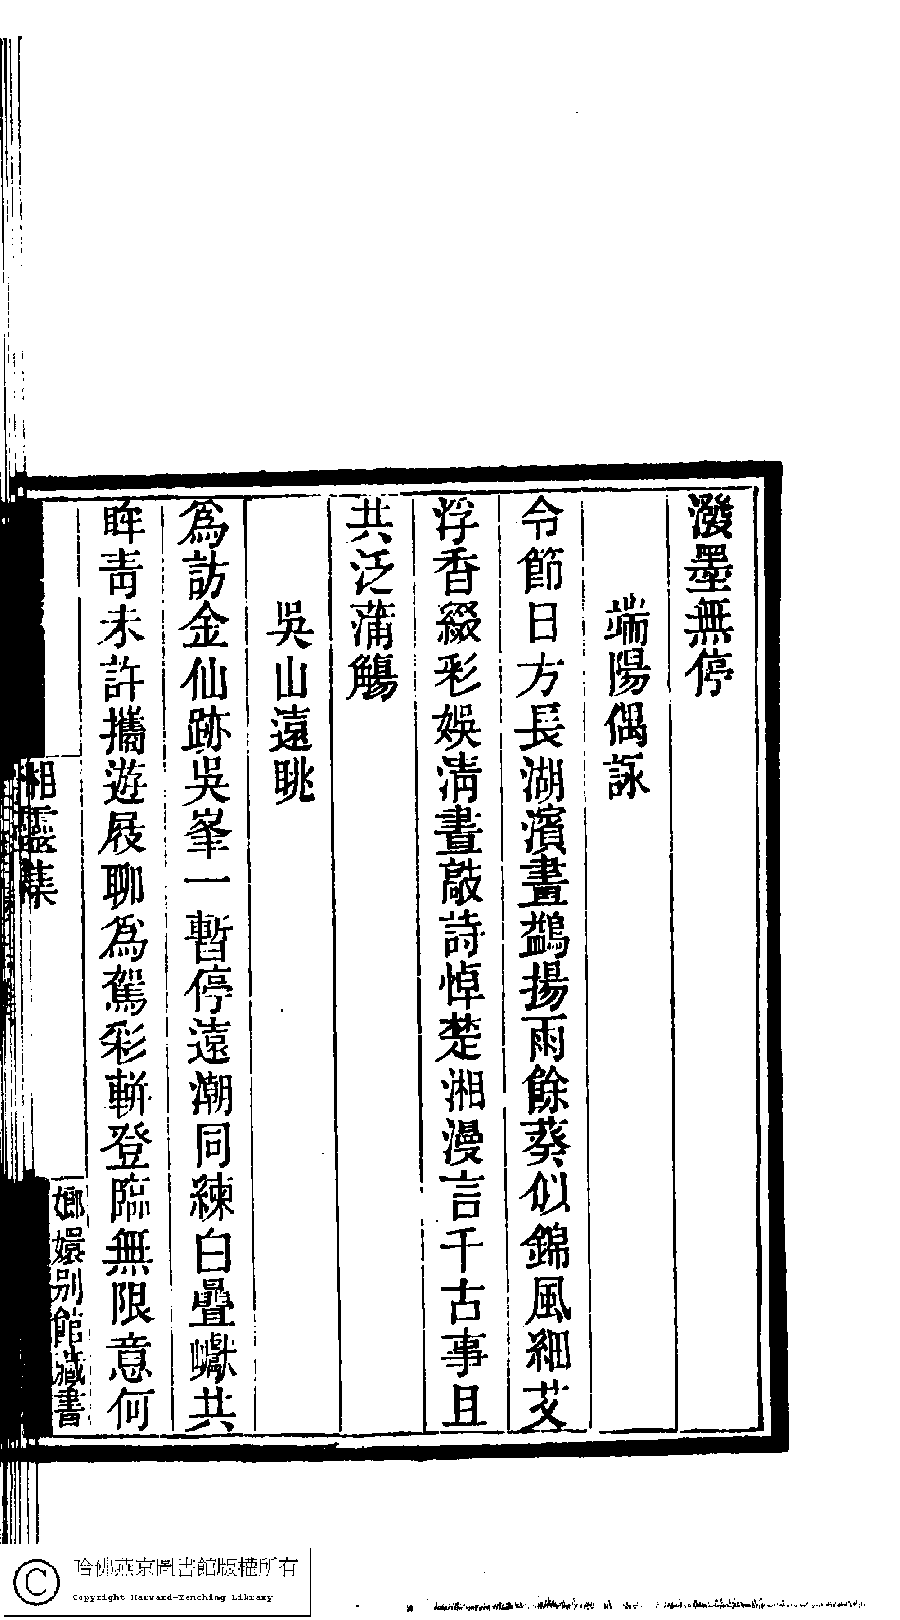 潑墨無停
端陽偶詠
令節日方長湖濱畫鷁揚雨餘葵似錦風細艾
浮香綴彩娛淸晝敲詩悼楚湘漫言千古事且
共泛蒲觴
吳山遠眺
爲訪金仙跡吳峯一暫停遠潮同練白疊巘共
眸靑未許攜遊屐聊爲駕彩軿登臨無限意何
湘靈集
嫏嬛别館藏書
哈佛燕京圖書館版權所有
Copyright Harvard-Yenching Library